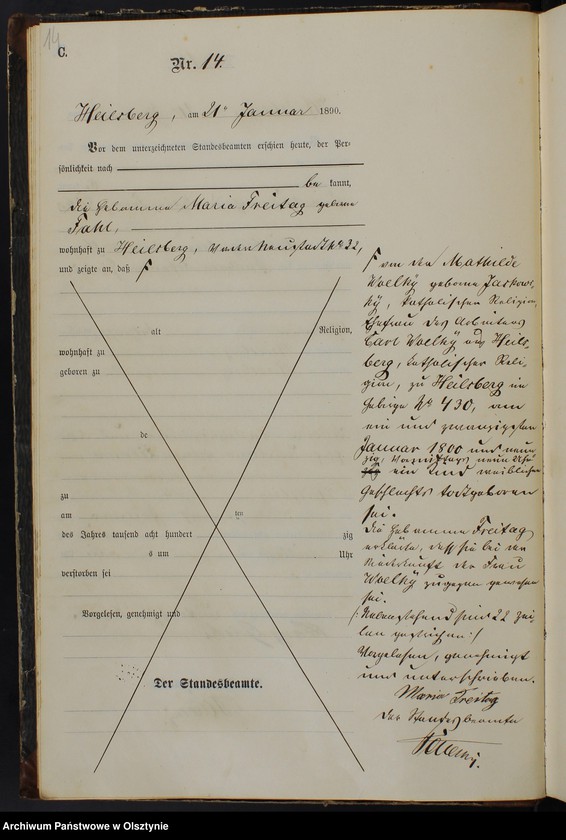 14
C.
Nr. 14.
Heilsberg, am 21ᵗᵉⁿ Januar 1890.
Vor dem unterzeichneten Standesbeamten erschien heute, der Per-
sönlichkeit nach
be kannt,
die Hebamme Maria Freitag geborne
Fahl,
wohnhaft zu Heilsberg, Neustadt No 32,
und zeigte an, daß
alt Religion,
wohnhaft zu
geboren zu
de
zu
am ten
des Jahres tausend acht hundert zig
s um Uhr
verstorben sei
Vorgelesen, genehmigt und
Der Standesbeamte.
von der Mathilde
Woelky geborne Jarkows-
ky, katholischer Religion,
Ehefrau des Arbeiters
Carl Woelky aus Heils-
berg, katholischer Reli-
gion, zu Heilsberg im
No 430, am
ein und zwanzigsten
Januar 1800 und neun
zig, Vormittags neun Uhr
ein Kind weiblichen
Geschlechts todtgeboren
sei.
Die Hebamme Freitag
erklärte, daß sie bei der
Niederkunft der Frau
Woelky zugegen gewesen
sei.
/: Nebenstehend sind 22 Zei-
len gestrichen :/
Vorgelesen, genehmigt
und unterschrieben.
Maria Freitag
Der Standesbeamte
Archiwum Państwowe w Olsztynie